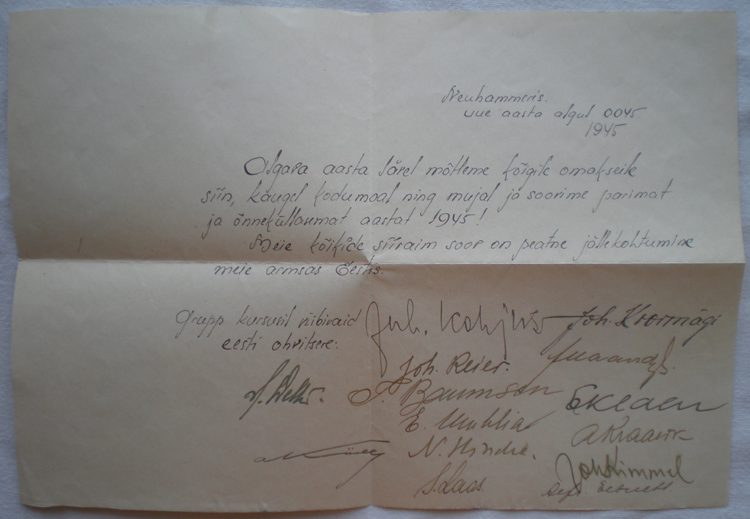 Neuhammeris.
uue aasta algul 0045
1945
Algava aasta lävel mõtleme kõigile omakseile
siin, kaugel kodumaal ning mujal ja soovime parimat
ja õnneküllasemat aastat 1945!
Meie kõikide siiraim soov on peatne jällekohtumine
meie armsas Eestis.
Grupp kursusil viibivaid
eesti ohvitsere:
Joh. Koovmägi
Joh. Reier.
Baumson
E.
N. Hindre.
S. Laas.
Joh Kimmel